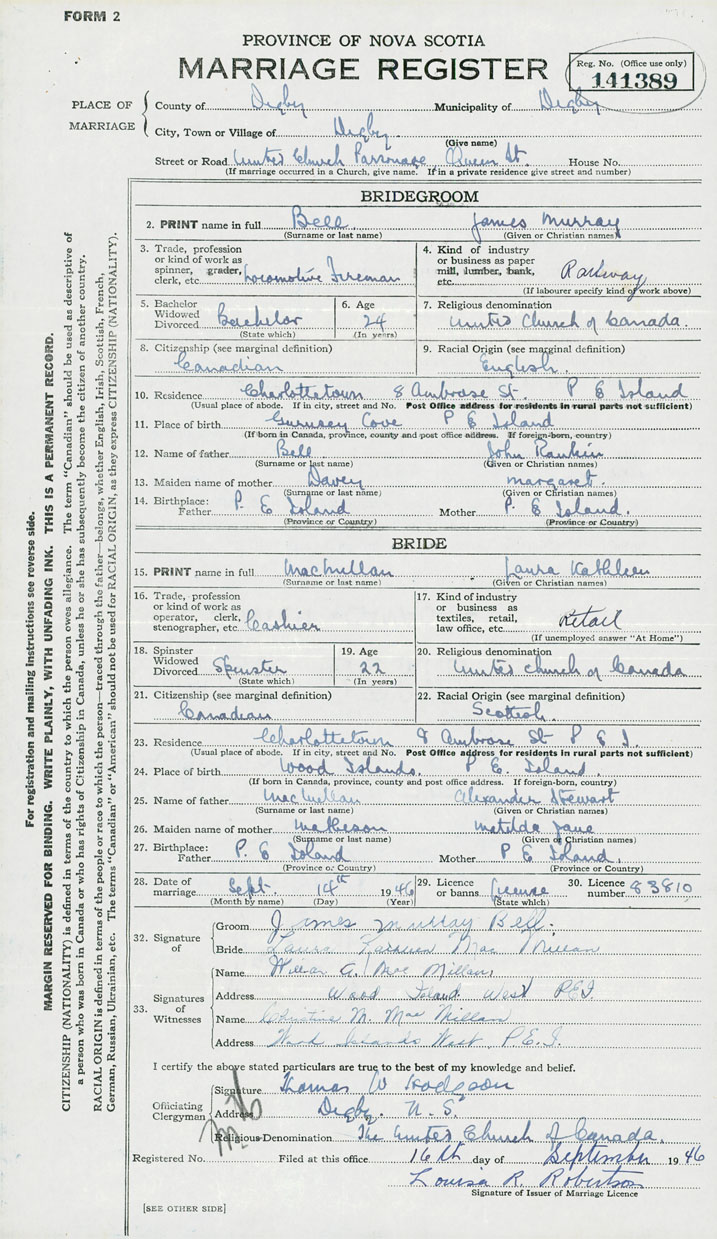 FORM 2
PROVINCE OF NOVA SCOTIA
MARRIAGE REGISTER
Reg. No. (Office use only)
141389
PLACE OF MARRIAGE
County of Digby Municipality of Digby
City, Town or Village of Digby
(Give name)
Street or Road United Church Parsonage Queen St. House No.
(If marriage occurred in a Church, give name. If in a private residence give street and number)
BRIDEGROOM
2. PRINT name in full Bell James Murray
(Surname or last name) (Given or Christian names)
3. Trade, profession or kind of work as spinner, grader, clerk, etc. Locomotive Fireman
4. Kind of industry or business as paper mill, lumber, bank, etc. Railway
(If labourer specify kind of work above)
5. Bachelor Widowed Divorced Bachelor
(State which)
6. Age 24
(In years)
7. Religious denomination
United Church of Canada.
8. Citizenship (see marginal definition)
Canadian
9. Racial Origin (see marginal definition)
English.
10. Residence Charlottetown 8 Ambrose St. P E Island
(Usual place of abode. If in city, street and No. Post Office address for residents in rural parts not sufficient)
11. Place of birth Guernsey Cove P E Island
(If born in Canada, province, county and post office address. If foreign-born, country)
12. Name of father Bell John Rankin
(Surname or last name) (Given or Christian names)
13. Maiden name of mother Davey Margaret.
(Surname or last name) (Given or Christian names)
14. Birthplace: Father P. E Island Mother P. E Island.
(Province or Country) (Province or Country)
BRIDE
15. PRINT name in full MacMillan Laura Kathleen
(Surname or last name) (Given or Christian names)
16. Trade, profession or kind of work as operator, clerk, stenographer, etc. Cashier
17. Kind of industry or business as textiles, retail, law office, etc. Retail
(If unemployed answer "At Home")
18. Spinster Widowed Divorced Spinster
(State which)
19. Age 22
(In years)
20. Religious denomination
United Church of Canada
21. Citizenship (see marginal definition)
Canadian
22. Racial Origin (see marginal definition)
Scottish.
23. Residence Charlottetown 8 Ambrose St P E I.
(Usual place of abode. If in city, street and No. Post Office address for residents in rural parts not sufficient)
24. Place of birth Wood Islands. P. E. Island.
(If born in Canada, province, county and post office address. If foreign-born, country)
25. Name of father MacMillan Alexander Stewart
(Surname or last name) (Given or Christian names)
26. Maiden name of mother Matheson Matilda Jane
(Surname or last name) (Given or Christian names)
27. Birthplace: Father P. E Island Mother P E Island.
(Province or Country) (Province or Country)
28. Date of marriage Sept. 14th 1946
(Month by name) (Day) (Year)
29. Licence or banns License
(State which)
30. Licence number 83810
32. Signature of
Groom James Murray Bell.
Bride Laura Kathleen MacMillan
33. Signatures of Witnesses
Name A. MacMillan,
Address Wood Island West P.E.I.
Name Christine M. MacMillan
Address Wood Islands West, P.E.I.
I certify the above stated particulars are true to the best of my knowledge and belief.
Officiating Clergyman
Signature Thomas W Hodgson
Address Digby. N.S.
Religious Denomination The United Church of Canada.
Registered No. Filed at this office 16th day of September 1946
Louisa R. Robertson
Signature of Issuer of Marriage Licence
[SEE OTHER SIDE]
For registration and mailing instructions see reverse side.
MARGIN RESERVED FOR BINDING. WRITE PLAINLY, WITH UNFADING INK. THIS IS A PERMANENT RECORD.
CITIZENSHIP (NATIONALITY) is defined in terms of the country to which the person owes allegiance. The term "Canadian" should be used as descriptive of
a person who was born in Canada or who has rights of Citizenship in Canada, unless he or she has subsequently become the citizen of another country.
RACIAL ORIGIN is defined in terms of the people or race to which the person—traced through the father—belongs, whether English, Irish, Scottish, French,
German, Russian, Ukrainian, etc. The terms "Canadian" or "American" should not be used for RACIAL ORIGIN, as they express CITIZENSHIP (NATIONALITY).